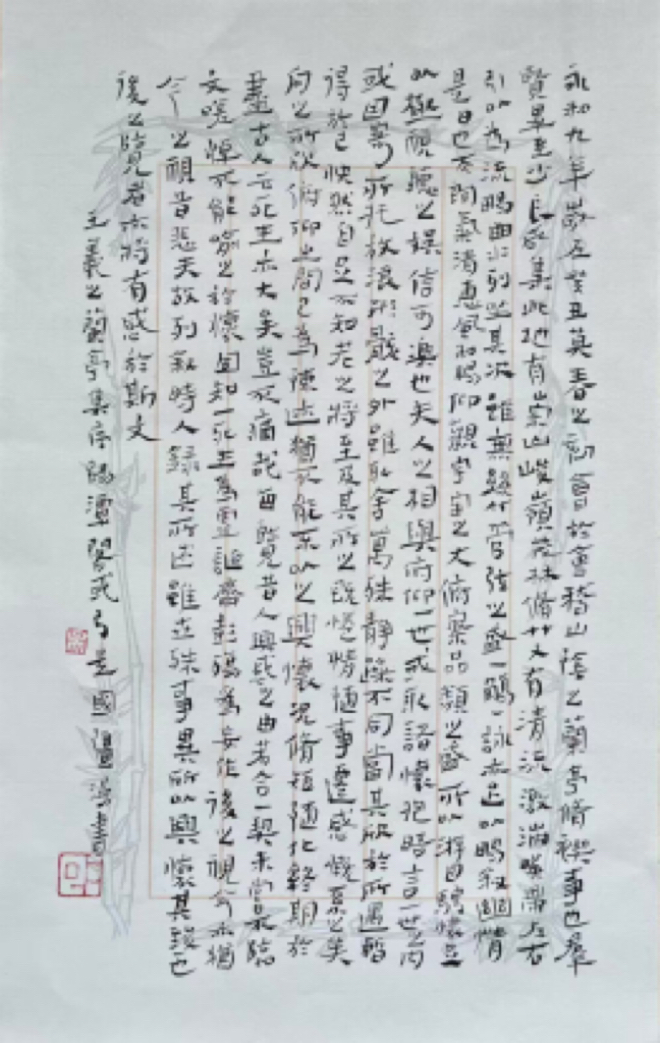 永和九年歲在癸丑莫春之初會於會稽山陰之蘭亭修禊事也羣
賢畢至少長咸集此地有崇山峻嶺茂林修竹又有清流激湍映帶左右
引以為流觴曲水列坐其次雖無絲竹管弦之盛一觴一詠亦足以暢敘幽情
是日也天朗氣清惠風和暢仰觀宇宙之大俯察品類之盛所以遊目騁懷足
以極視聽之娛信可樂也夫人之相與俯仰一世或取諸懷抱晤言一室之內
或因寄所托放浪形骸之外雖取舍萬殊靜躁不同當其欣於所遇暫
得於己快然自足不知老之將至及其所之既惓情隨事遷感慨系之矣
向之所欣俯仰之間已為陳迹猶不能不以之興懷況修短隨化終期於
盡古人云死生亦大矣豈不痛哉每覽昔人興感之由若合一契未嘗不臨
文嗟悼不能喻之於懷固知一死生為虛誕齊彭殤為妄作後之視今亦猶
今之視昔悲夫故列敘時人錄其所述雖世殊事異所以興懷其致一也
後之覽者亦將有感於斯文
王羲之蘭亭集序 書